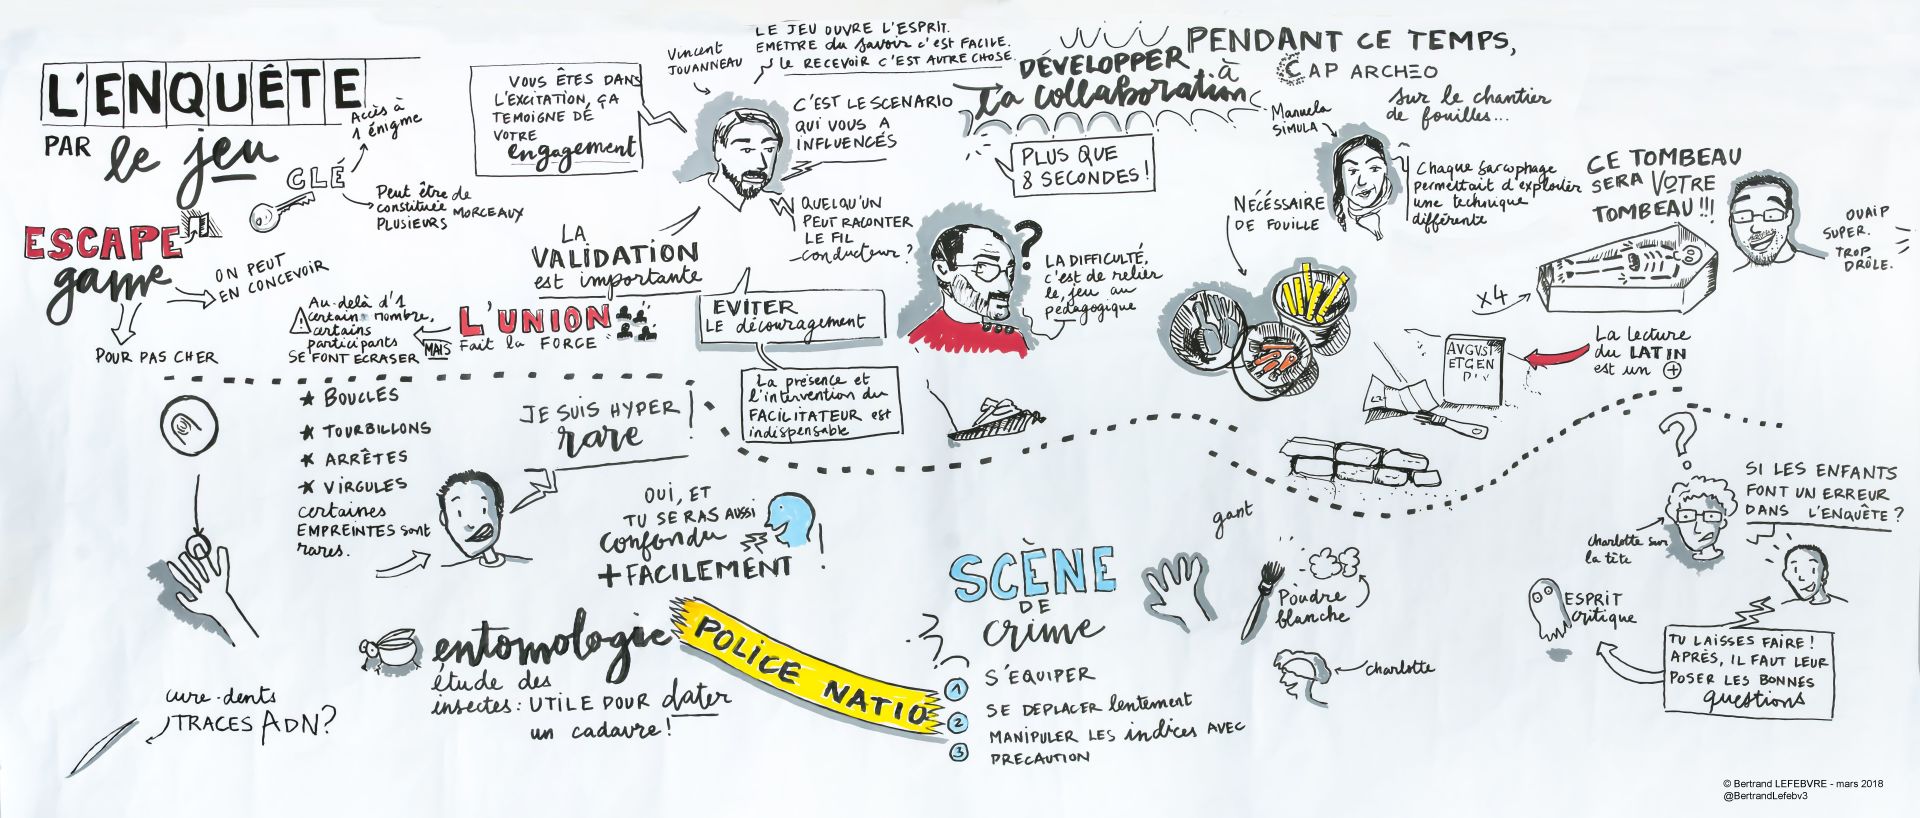 L'ENQUÊTE
PAR le jeu
CLÉ
Accès à
1 énigme
Peut être de
constituée MORCEAUX
PLUSIEURS
ESCAPE
game
ON PEUT
EN CONCEVOIR
POUR PAS CHER
Au-delà d'1
certain nombre,
certains
participants
SE FONT ECRASER
MAIS
L'UNION
Fait la FORCE
VOUS ÊTES DANS
L'EXCITATION, ÇA
TEMOIGNE DE
VOTRE
engagement
Vincent
JOUANNEAU
LE JEU OUVRE L'ESPRIT.
EMETTRE du savoir c'est FACILE.
le RECEVOIR C'EST AUTRE CHOSE.
C'EST LE SCENARIO
QUI VOUS A
INFLUENCÉS
QUELQU'UN
PEUT RACONTER
LE FIL
conducteur?
LA
VALIDATION
est importante
EVITER
LE découragement
La présence et
l'intervention du
FACILITATEUR est
indispensable
DÉVELOPPER à
la collaboration
PLUS QUE
8 SECONDES!
?
LA DIFFICULTÉ,
c'est de relier
le jeu au
pédagogique
PENDANT CE TEMPS,
CAP ARCHEO
sur le chantier
de fouilles...
Manuela
SIMULA
Chaque sarcophage
permettait d'exploiter
une technique
différente
NÉCÉSSAIRE
DE FOUILLE
CE TOMBEAU
SERA VOTRE
TOMBEAU!!!
OUAIP
SUPER.
TROP
DRÔLE.
x4
AVGVST
ETGEN
La lecture
du LATIN
est un +
★ BOUCLES
★ TOURBILLONS
★ ARRÊTES
★ VIRGULES
certaines
EMPREINTES sont
rares.
JE SUIS HYPER
rare
OUI, ET
TU SERAS AUSSI
confondu
+ FACILEMENT!
cure-dents
TRACES ADN?
entomologie
étude des
insectes: UTILE POUR dater
un cadavre!
POLICE NATIO
SCÈNE
DE
crime
?
1 S'EQUIPER
2 SE DEPLACER lentement
3 MANIPULER LES indices AVEC
PRECAUTION
gant
Poudre
blanche
charlotte
?
charlotte sur
la tête
SI LES ENFANTS
FONT UN ERREUR
DANS L'ENQUÊTE?
ESPRIT
critique
TU LAISSES FAIRE!
APRÈS, IL FAUT LEUR
POSER LES BONNES
questions
© Bertrand LEFEBVRE - mars 2018
@BertrandLefebv3